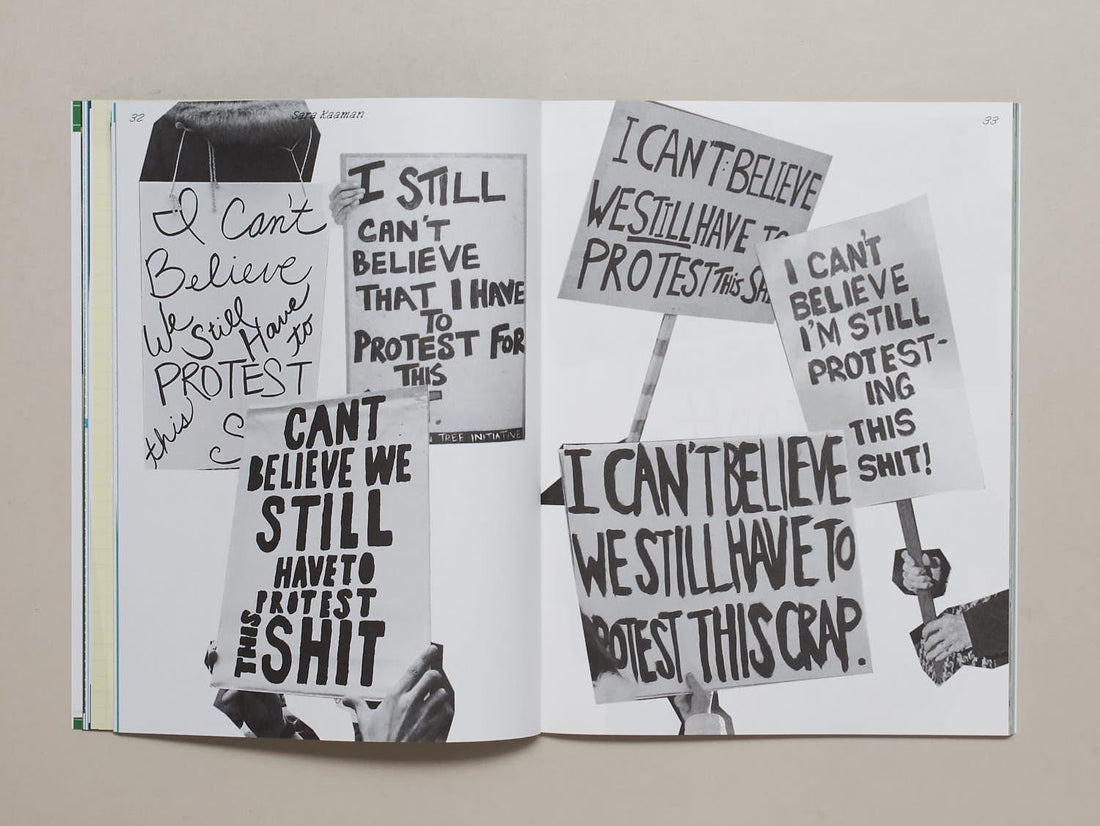 32
Sara Kaaman
I Can't
Believe
We Still Have to
PROTEST
this
I STILL
CAN'T
BELIEVE
THAT I HAVE
TO
PROTEST FOR
THIS
TREE INITIATIVE
CANT
BELIEVE WE
STILL
HAVE TO
PROTEST
THIS
SHIT
33
I CAN'T BELIEVE
WE STILL HAVE TO
PROTEST THIS
I CAN'T
BELIEVE
I'M STILL
PROTEST-
ING
THIS
SHIT!
I CAN'T BELIEVE
WE STILL HAVE TO
PROTEST THIS CRAP.